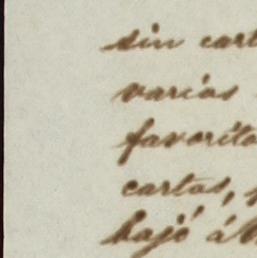 sin cart
varios
favorito
cartas,
bajó á